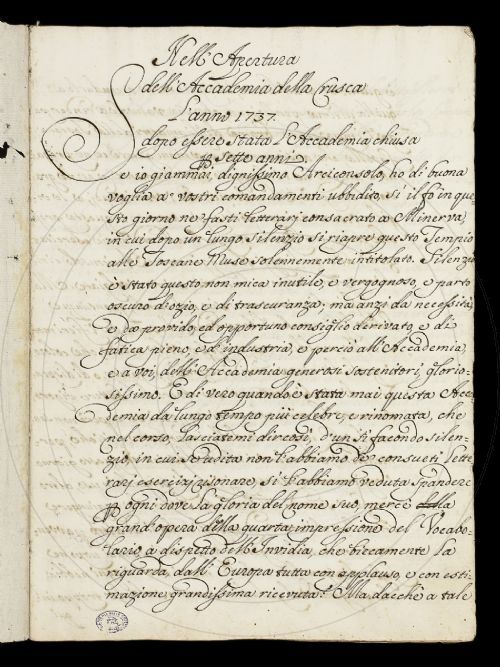 Nell' Apertura
dell' Accademia della Crusca
L'anno 1737.
dopo essere stata l'Accademia chiusa
ꝑ sette anni.
Se io giammai, dignissimo Arciconsolo, ho di buona
voglia a' vostri comandamenti ubbidito, sì il fo in que
sto giorno ne' fasti letterarj consacrato a Minerva,
in cui dopo un lungo silenzio si riapre questo Tempio
alle Toscane Muse solennemente intitolato. Silenzio
è stato questo non mica inutile, e vergognoso, e parto
oscuro d'ozio, e di trascuranza; ma anzi da necessità,
e da provido, ed opportuno consiglio derivato, e di
fatica pieno, e d'industria, e perciò all'Accademia,
e a voi, dell'Accademia generosi sostenitori, glorio-
sissimo. E di vero quando è stata mai questa Acca
demia da lungo tempo più celebre, e rinomata, che
nel corso, lasciatemi dir così, d'un sì facondo silen-
zio, in cui se udita non l'abbiamo de' consueti lette
rarj esercizj risonare, sì l'abbiamo veduta spandere
ꝑ ogni dove la gloria del nome suo, mercè della
grand'opera della quarta impressione del Vocabo-
lario, a dispetto dell'Invidia, che biecamente la
riguarda, dall'Europa tutta con applauso, e con esti-
mazione grandissima ricevuta? Ma dacchè a tale